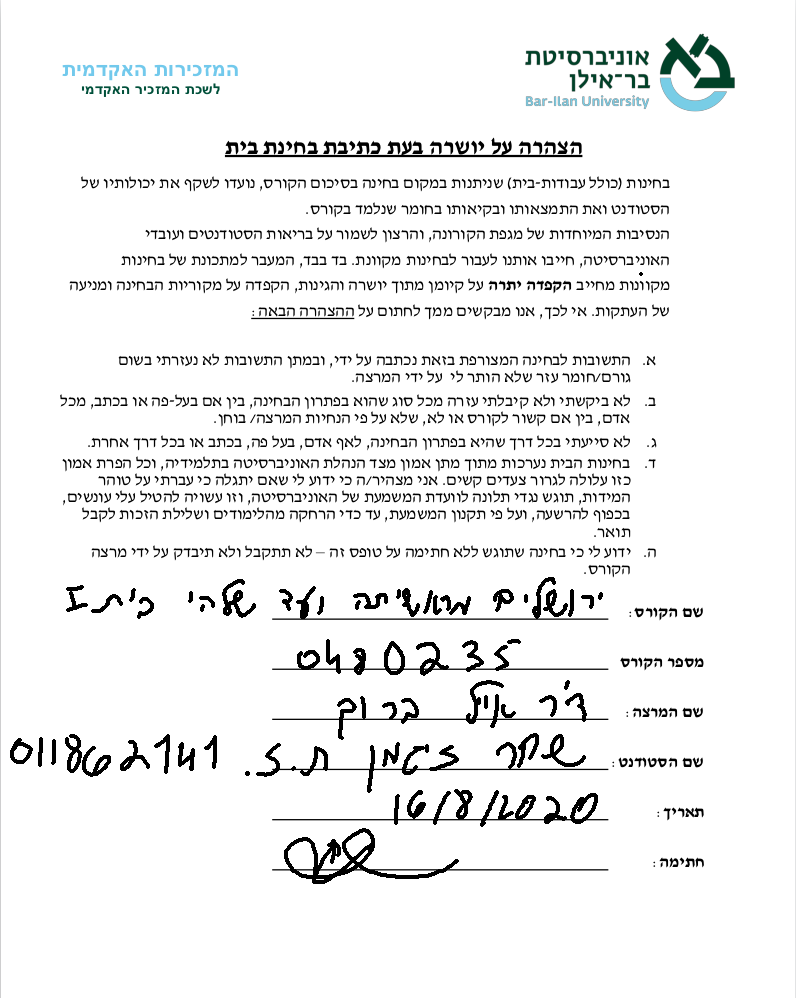 אוניברסיטת
בר־אילן
Bar-Ilan University
המזכירות האקדמית
לשכת המזכיר האקדמי
הצהרה על יושרה בעת כתיבת בחינת בית
בחינות (כולל עבודות-בית) שניתנות במקום בחינה בסיכום הקורס, נועדו לשקף את יכולותיו של
הסטודנט ואת התמצאותו ובקיאותו בחומר שנלמד בקורס.
הנסיבות המיוחדות של מגפת הקורונה, והרצון לשמור על בריאות הסטודנטים ועובדי
האוניברסיטה, חייבו אותנו לעבור לבחינות מקוונת. בד בבד, המעבר למתכונת של בחינות
מקוונות מחייב הקפדה יתרה על קיומן מתוך יושרה והגינות, הקפדה על מקוריות הבחינה ומניעה
של העתקות. אי לכך, אנו מבקשים ממך לחתום על ההצהרה הבאה:
א. התשובות לבחינה המצורפת בזאת נכתבה על ידי, ובמתן התשובות לא נעזרתי בשום
גורם/חומר עזר שלא הותר לי על ידי המרצה.
ב. לא ביקשתי ולא קיבלתי עזרה מכל סוג שהוא בפתרון הבחינה, בין אם בעל-פה או בכתב, מכל
אדם, בין אם קשור לקורס או לא, שלא על פי הנחיות המרצה/ בוחן.
ג. לא סייעתי בכל דרך שהיא בפתרון הבחינה, לאף אדם, בעל פה, בכתב או בכל דרך אחרת.
ד. בחינות הבית נערכות מתוך מתן אמון מצד הנהלת האוניברסיטה בתלמידיה, וכל הפרת אמון
כזו עלולה לגרור צעדים קשים. אני מצהיר/ה כי ידוע לי שאם יתגלה כי עברתי על טוהר
המידות, תוגש נגדי תלונה לוועדת המשמעת של האוניברסיטה, וזו עשויה להטיל עלי עונשים,
בכפוף להרשעה, ועל פי תקנון המשמעת, עד כדי הרחקה מהלימודים ושלילת הזכות לקבל
תואר.
ה. ידוע לי כי בחינה שתוגש ללא חתימה על טופס זה – לא תתקבל ולא תיבדק על ידי מרצה
הקורס.
שם הקורס: ירושלים מראשיתה ועד שלהי בית I
מספר הקורס 0480235
שם המרצה: ד"ר אייל ברוך
שם הסטודנט: שחר זיגמן ת.ז. 011862741
תאריך: 16/8/2020
חתימה: